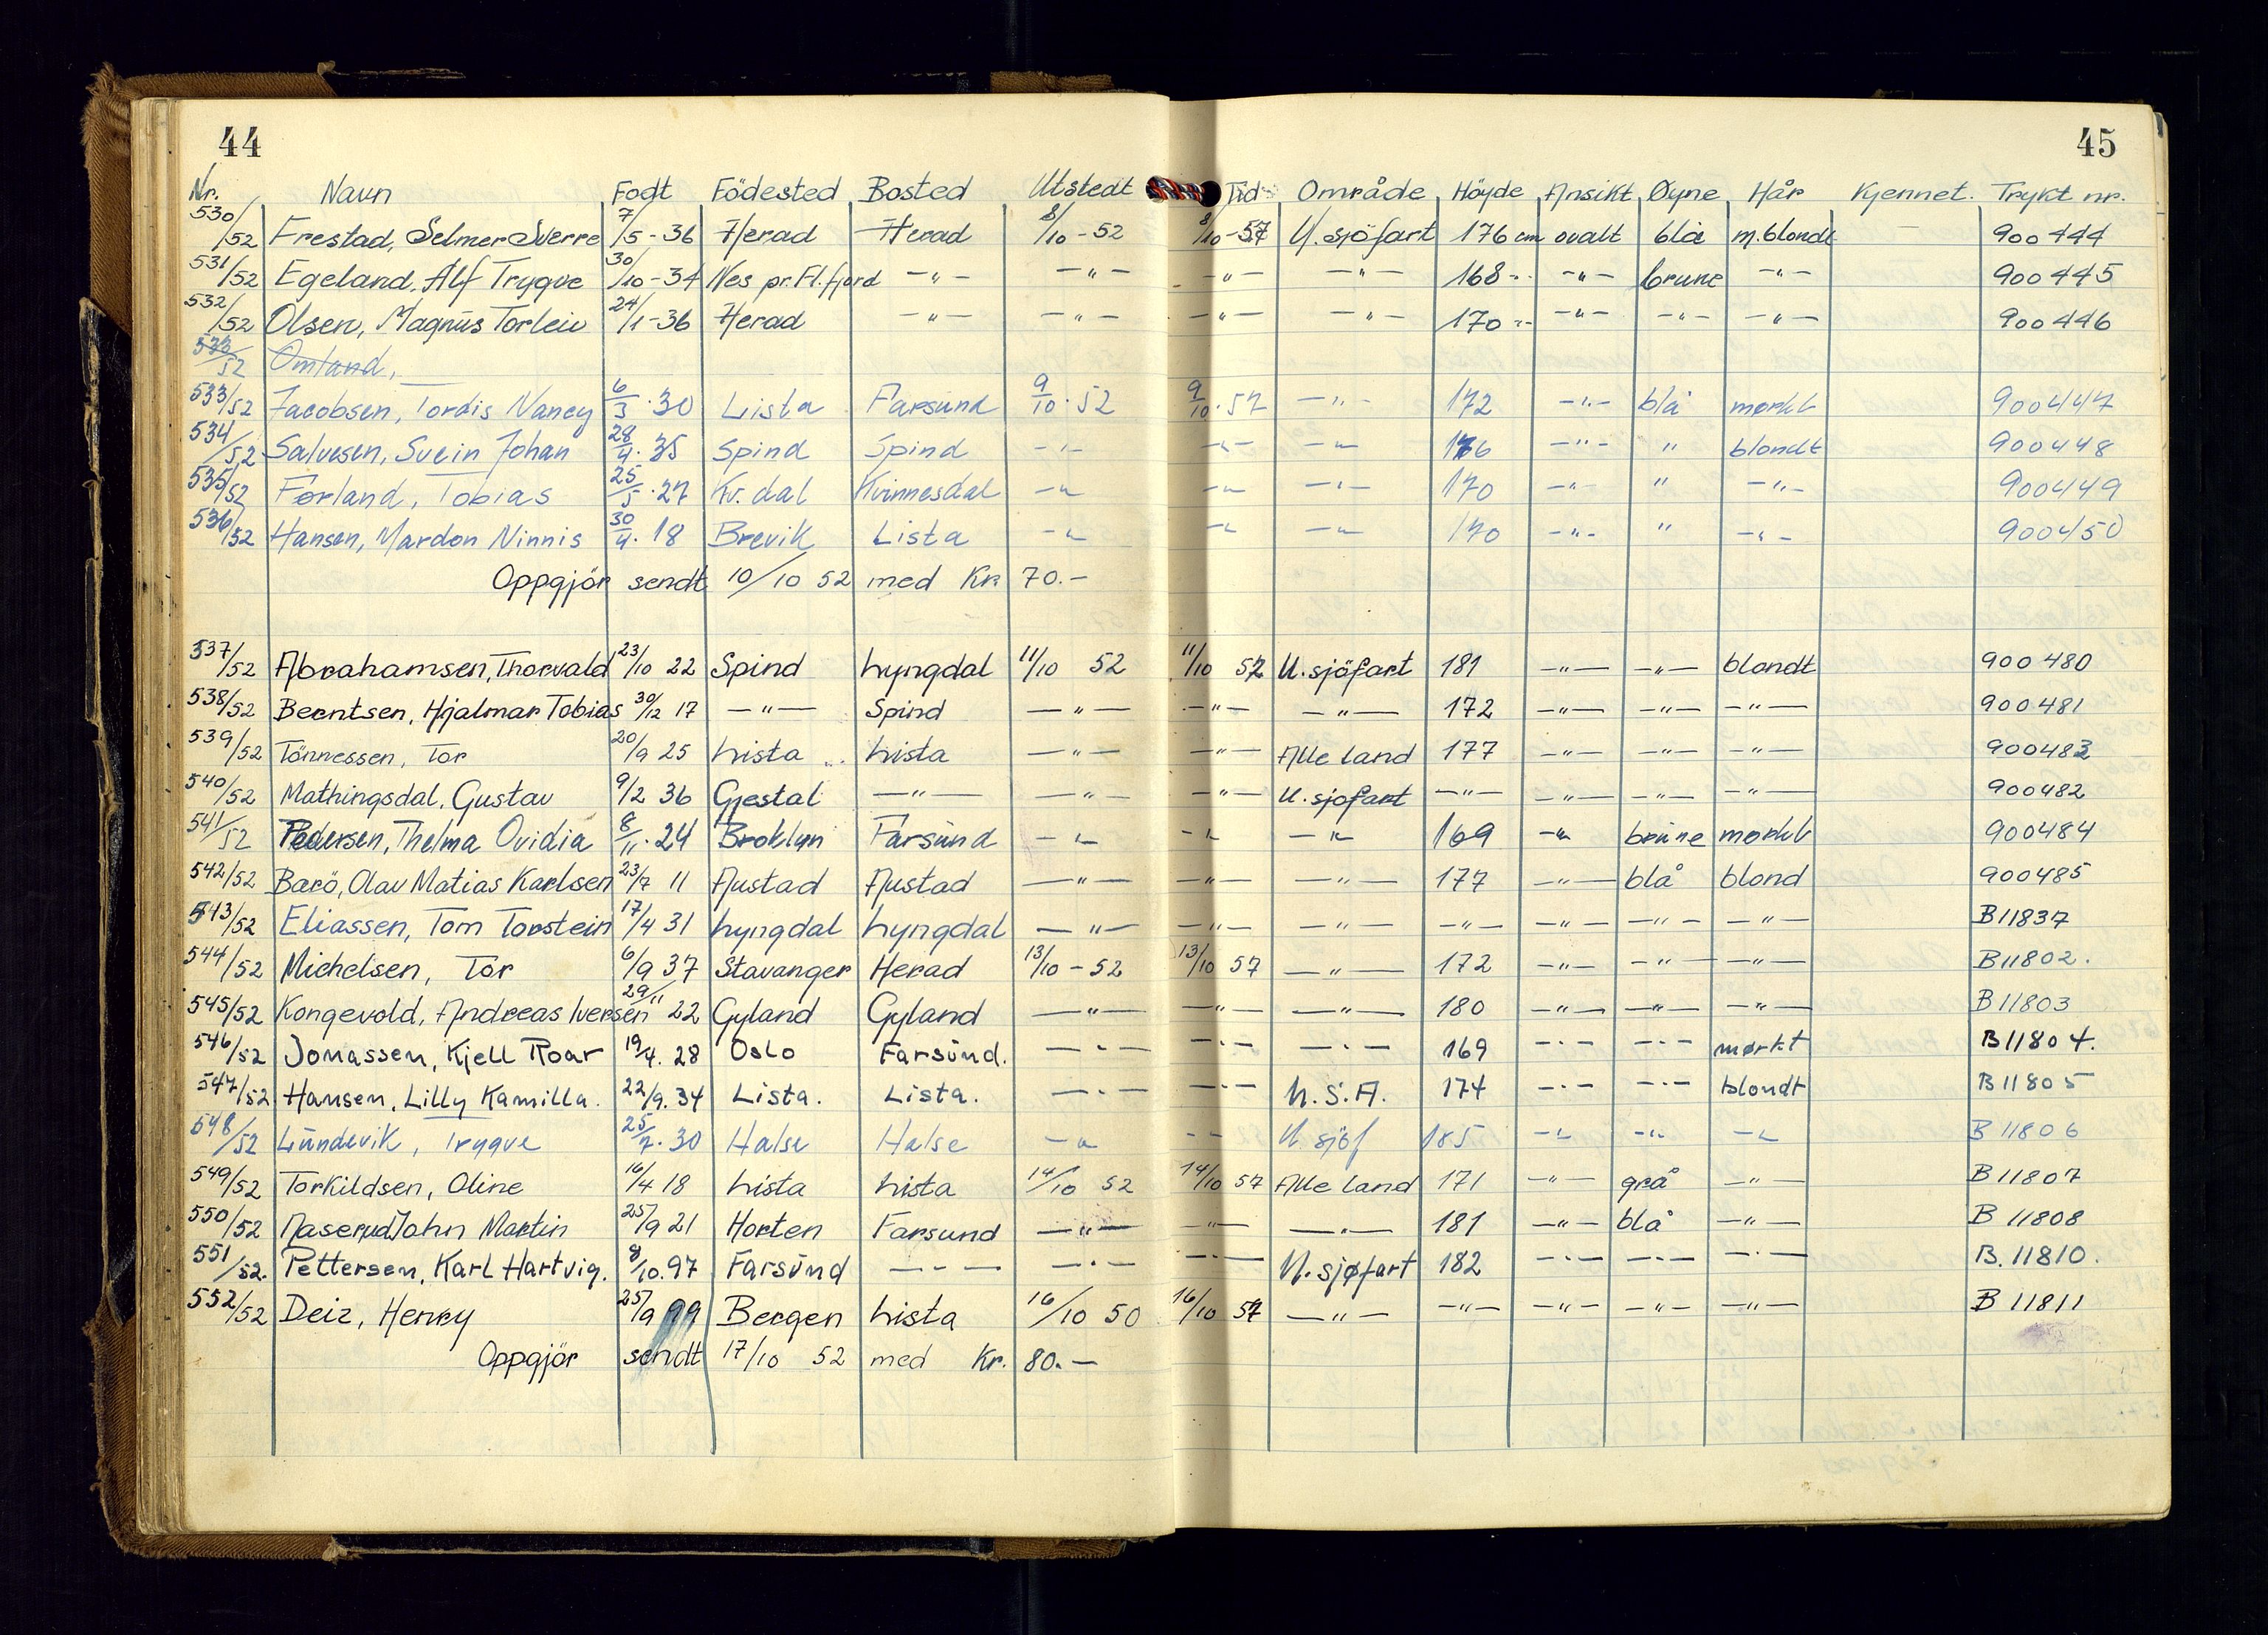 44
45
Nr. Navn Fodt Födested Bosted Utstedt Tid Område Höyde Ansikt Øyne Hår Kjennet. Trykt nr.
530/52 Frestad, Selmer Sverre 7/5-36 Herad Herad 8/10-52 8/10-57 U.sjöfart 176 cm ovalt blå m.blondt — 900444
531/52 Egeland, Alf Trygve 30/10-34 Nes pr.Fl.fjord -"- -"- -"- -"- 168-"- -"- brune -"- 900445
532/52 Olsen, Magnus Torleiv 24/1-36 Herad -"- -"- -"- -"- 170-"- -"- -"- -"- 900446
533/52 Omland,
533/52 Jacobsen, Tordis Nancy 6/3·30 Lista Farsund 9/10·52 9/10·57 -"- 172 -"- blå mørkt 900447
534/52 Salvesen, Svein Johan 28/4·35 Spind Spind -"- -"- -"- 176 -"- " blondt 900448
535/52 Førland, Tobias 25/5·27 Kv.dal Kvinnesdal -"- -"- -"- 170 -"- " -"- 900449
536/52 Hansen, Mardon Ninnis 30/4·18 Brevik Lista -"- -"- -"- 170 -"- " -"- 900450
Oppgjör sendt 10/10 52 med Kr. 70.-
537/52 Abrahamsen, Thorvald 23/10 22 Spind Lyngdal 11/10 52 11/10 57 U.sjöfart 181 -"- -"- blondt 900480
538/52 Berntsen, Hjalmar Tobias 30/12 17 -"- Spind -"- -"- -"- 172 -"- -"- -"- 900481
539/52 Tönnessen, Tor 20/9 25 Lista Lista -"- -"- Alle land 177 -"- -"- -"- 900483
540/52 Mathingsdal, Gustav 9/2 36 Gjestal -"- -"- -"- U.sjøfart -"- -"- -"- -"- 900482
541/52 Pedersen, Thelma Ovidia 8/11·24 Broklyn Farsund -"- -"- -"- 169 -"- brune mørkt 900484
542/52 Barö, Olav Matias Karlsen 23/7 11 Austad Austad -"- -"- -"- 177 -"- blå blond 900485
543/52 Eliassen, Tom Torstein 17/4 31 Lyngdal Lyngdal -"- -"- -"- -"- -"- -"- -"- B11837
544/52 Michelsen, Tor 6/9 37 Stavanger Herad 13/10-52 13/10 57 -"- 172 -"- -"- -"- B11802.
545/52 Kongevold, Andreas Iversen 29/11 22 Gyland Gyland -"- -"- -"- 180 -"- -"- -"- B11803
546/52 Jonassen, Kjell Roar 19/4. 28 Oslo Farsund. -"- -"- -"- 169 -"- -"- mørkt B11804.
547/52 Hansen, Lilly Kamilla. 22/9. 34 Lista. Lista. -"- -"- U.S.A. 174 -"- -"- blondt B11805
548/52 Lundevik, Trygve 25/7·30 Halse Halse -"- -"- U.sjöf 185 -"- -"- -"- B 11806
549/52 Torkildsen, Oline 16/4 18 Lista Lista 14/10 52 14/10 57 Alle land 171 -"- grå -"- B11807
550/52 Aaserud John Martin 25/9 21 Horten Farsund -"- -"- -"- 181 -"- blå -"- B 11808
551/52. Pettersen, Karl Hartvig. 8/10.97 Farsund -"- -"- -"- U.sjøfart 182 -"- -"- -"- B.11810.
552/52 Deiz, Henry 25/9 99 Bergen Lista 16/10 50 16/10 57 -"- -"- -"- -"- -"- B 11811
Oppgjör sendt 17/10 52 med Kr. 80.-